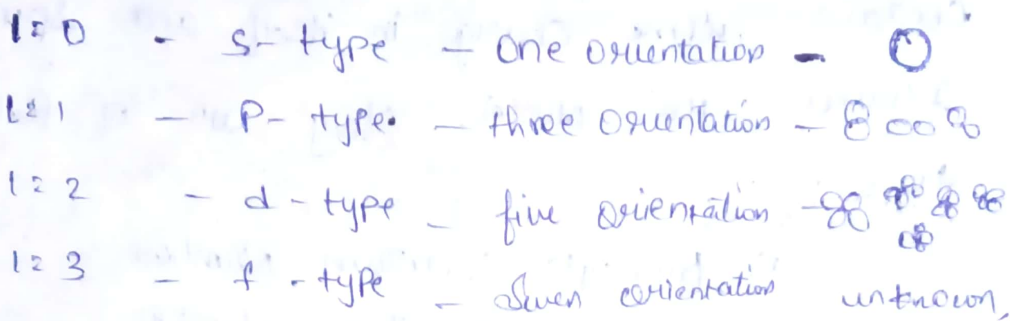 l=0 - s-type - one orientation -
l=1 - p-type. - three orientation -
l=2 - d-type - five orientation -
l=3 - f-type - Seven orientation unknown,